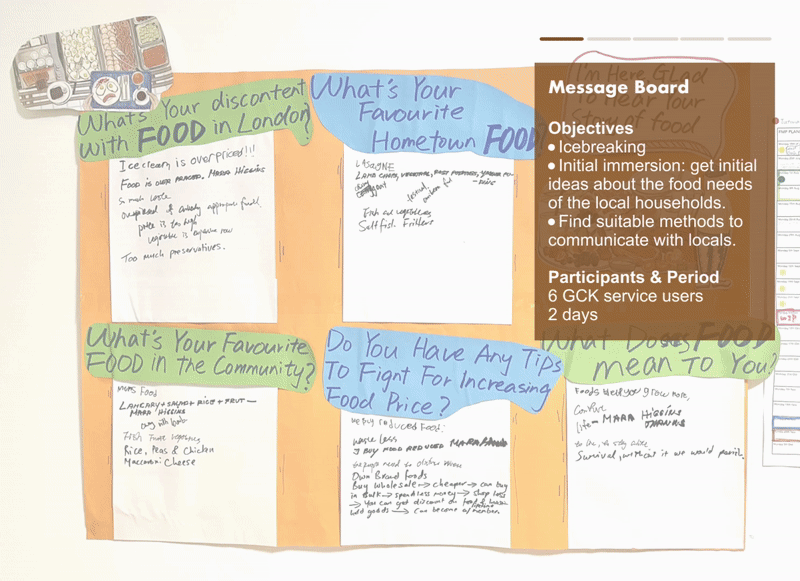 What's Your discontent
With FOOD in London?
Icecream is overpriced!!!
FOOD IS OVER PRICED. MARA HIGGINS
So much waste
Overpriced & culturally appropriate food
price is too high
vegetable is expensive now
Too much preservatives.
What's Your
Favourite
Hometown FOOD
LASAGNE
LAMB CHOPS, VEGETABLE,
Fish and vegetables
Saltfish. Fritters
I'm Here, GLad
To Hear Your
Story of food
Message Board
Objectives
● Icebreaking
● Initial immersion: get initial
ideas about the food needs
of the local households.
● Find suitable methods to
communicate with locals.
Participants & Period
6 GCK service users
2 days
What's Your Favourite
FOOD in the Community?
Food
SALAD + RICE + FRUIT —
MARA HIGGINS
Rice, Peas & Chicken
Maccaroni Cheese
Do You Have Any Tips
To Fight For Increasing
Food Price?
We buy reduced food.
Waste Less
I BUY FOOD REDUCED MARA
the people need to
Own Brand foods
Buy wholesale → cheaper → can buy
in Bulk → spend less money → shop less
→ You can get discount on food &
hold goods → Can become a member
What Does FOOD
mean To You?
Foods help you grow more,
Comfort
Life — MARA HIGGINS
to live, to stay alive
Survival, without it we would perish.